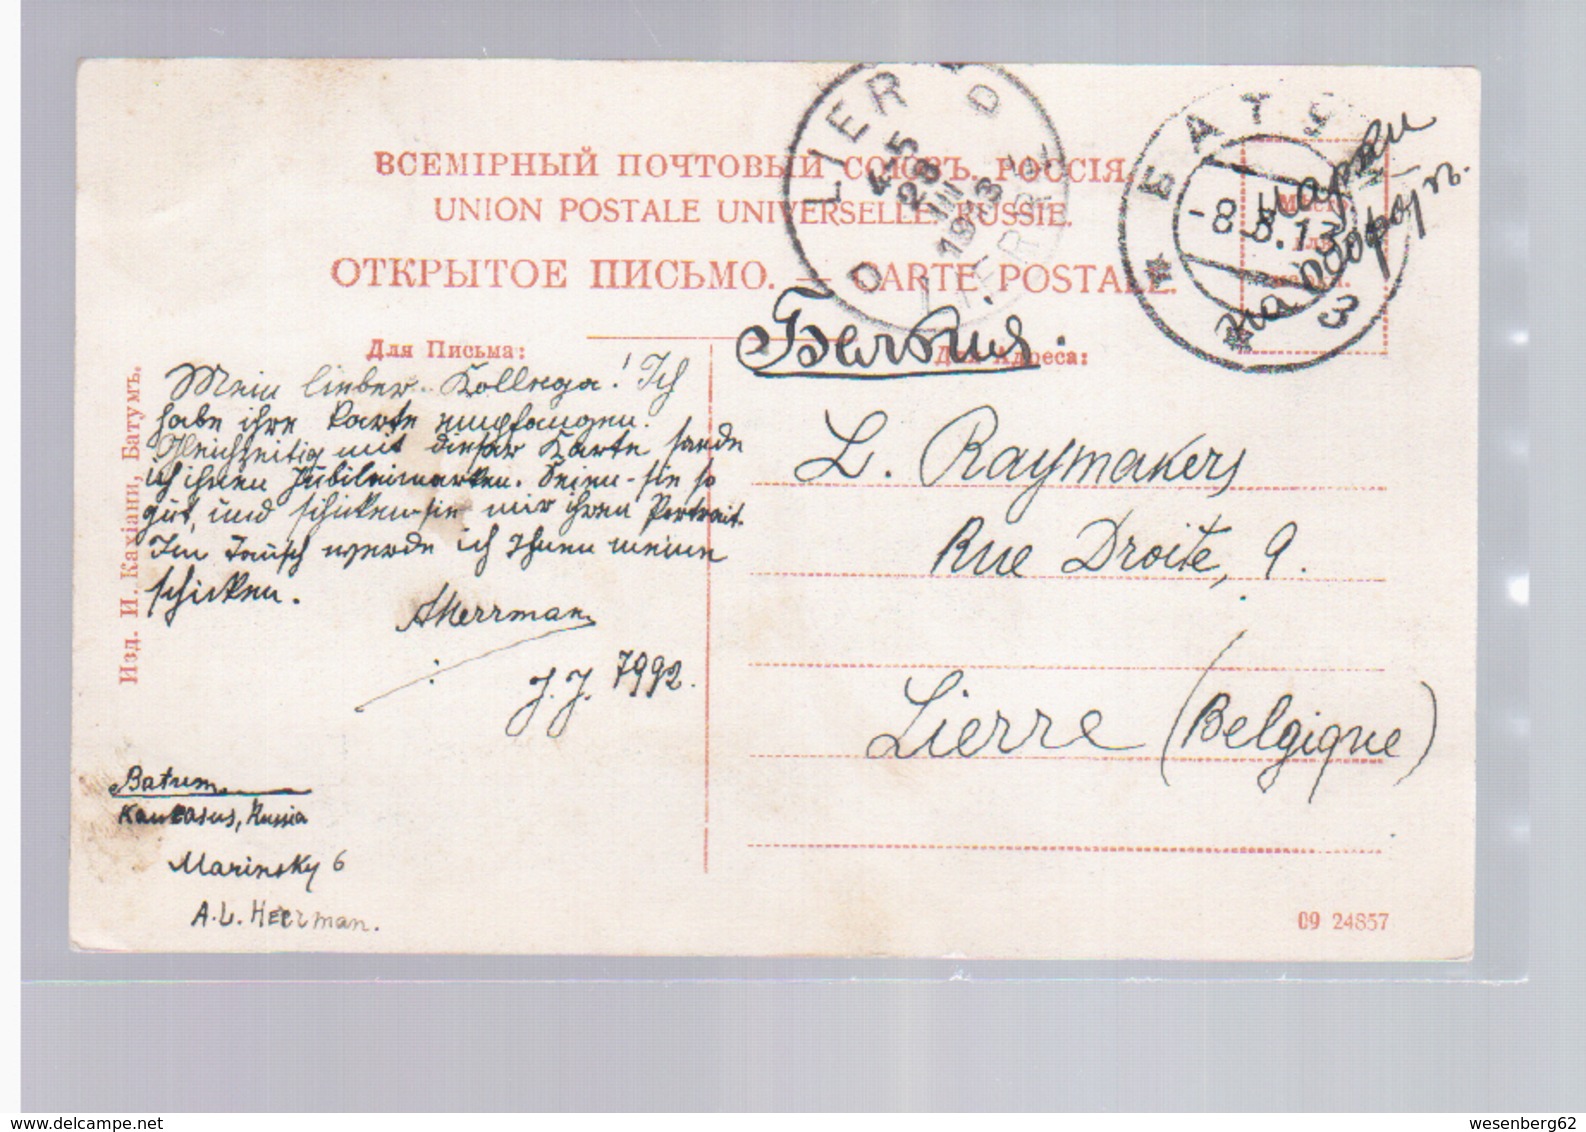 ВСЕМІРНЫЙ ПОЧТОВЫЙ СОЮЗЪ. РОССІЯ.
UNION POSTALE UNIVERSELLE. RUSSIE.
ОТКРЫТОЕ ПИСЬМО. — CARTE POSTALE.
LIER
4-5
28
III
1913
LIERRE
D
D
БАТУ
-8.3.13
3
марки
на оборотѣ.
Бельгия.
Для Письма:
Для Адреса:
Mein lieber Kollega! Ich
habe ihre Karte empfangen.
Gleichzeitig mit dieser Karte sende
ich ihnen Jubileimarken. Seien-sie so
gut, und schicken-sie mir ihren Portrait.
Im Tausch werde ich Ihnen meine
schicken.
AHerrman
J.J. 7992.
Batum
Kaukasus, Russia
Marinsky 6
A.L. Herrman.
L. Raymakers
Rue Droite, 9.
Lierre (Belgique)
Изд. И. Кахіани, Батумъ.
09 24857
www.delcampe.net
wesenberg62